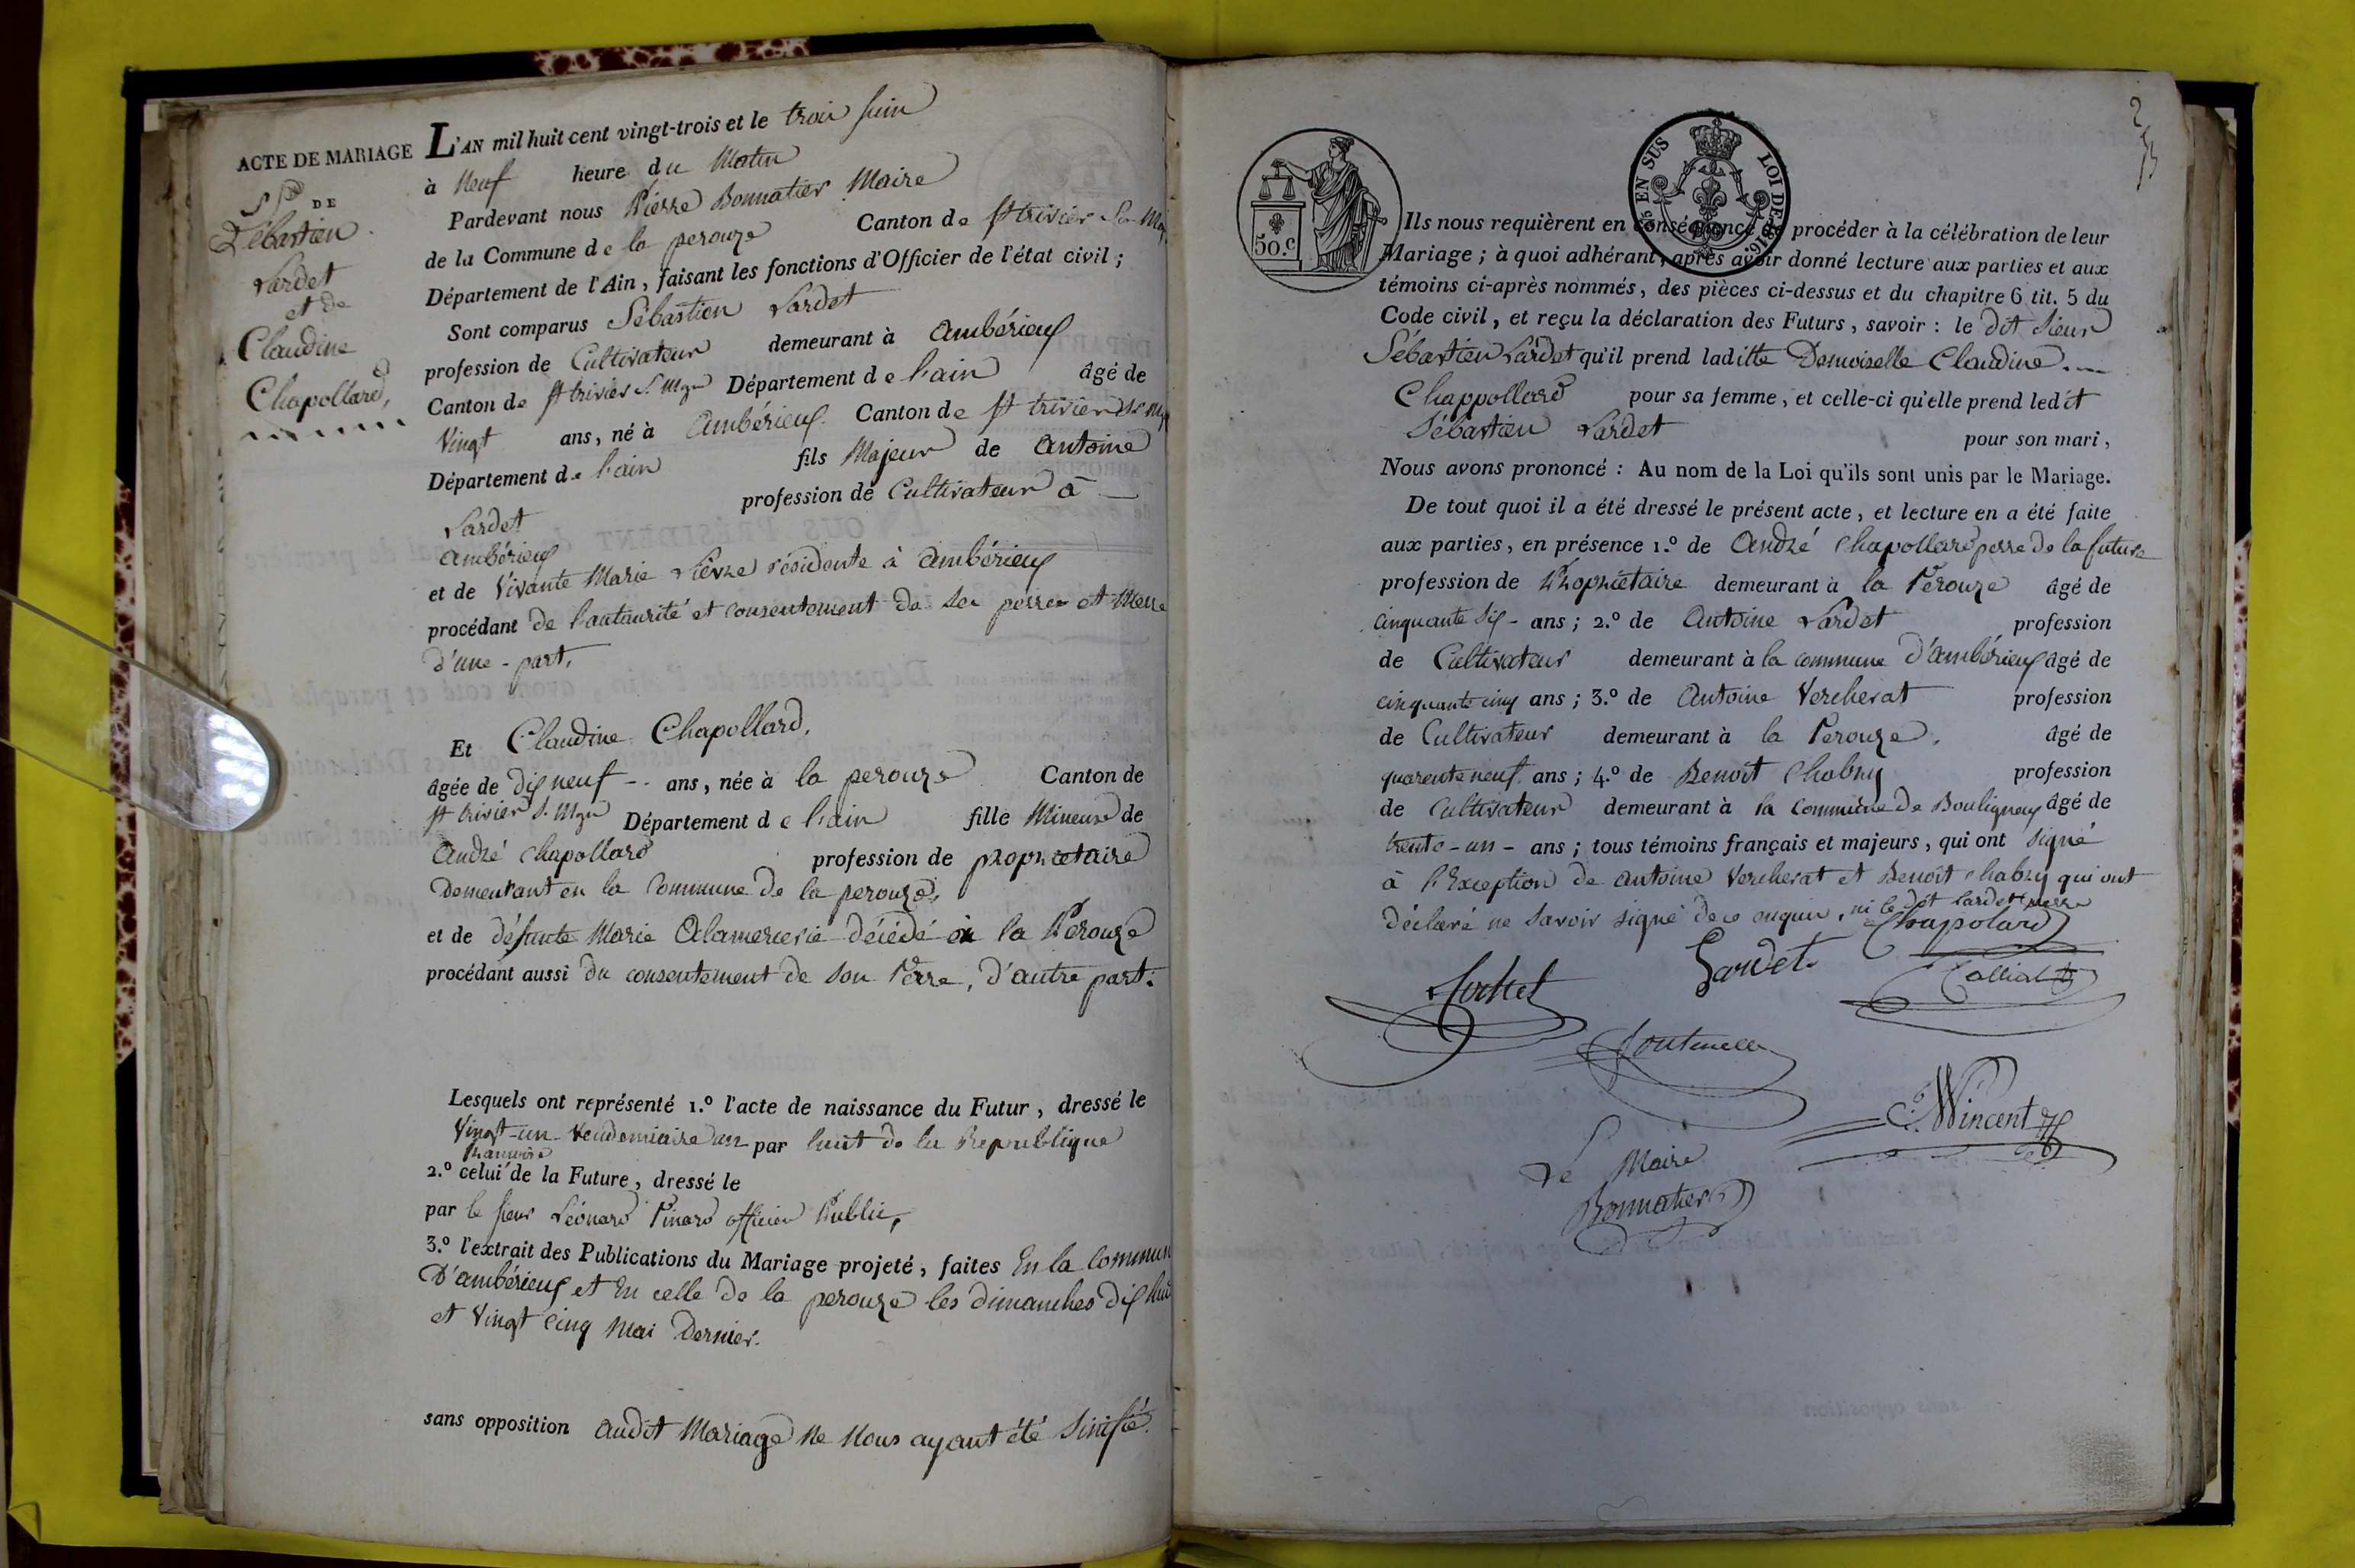 ACTE DE MARIAGE
DE
Sébastien
Lardet
et de
Claudine
Chapollard,
L'AN mil huit cent vingt-trois et le trois Juin
à Neuf heure du Matin
Pardevant nous Pierre Bonnatier Maire
de la Commune de la perouze Canton de St trivier Sur
Département de l'Ain, faisant les fonctions d'Officier de l'état civil;
Sont comparus Sébastien Lardet
profession de Cultivateur demeurant à Ambérieux
Canton de St trivier S. Mgn Département de l'ain âgé de
Vingt ans, né à Ambérieux Canton de St trivier
Département de l'ain fils Majeur de Antoine
Lardet profession de Cultivateur à
Ambérieux
et de Vivante Marie Lièvre résidente à Ambérieux
procédant de l'auturité et consentement de ses perre et Merre
d'une-part,
Et Claudine Chapollard,
âgée de dix neuf ans, née à la perouze Canton de
St trivier S. Mgn Département de l'ain fille Mineure de
André Chapollard profession de propriétaire
Demeurant en la Commune de la perouze,
et de défunte Marie Alamercerie décédé à la Pérouze
procédant aussi du consentement de son Perre, d'autre part.
Lesquels ont représenté 1.º l'acte de naissance du Futur, dressé le
Vingt-un Vendemiaire an par huit de la Republique
2.º celui de la Future, dressé le
par le sieur Léonard Pinard officier Public,
3.º l'extrait des Publications du Mariage projeté, faites En la Commun
D'ambérieux et En celle de la perouze les dimanches dix huit
et Vingt Cinq Mai Dernier.
sans opposition audit Mariage Ne Nous ayant été sinifié.
50.c
EN SUS LOI DE 1816.
Ils nous requièrent en conséquence de procéder à la célébration de leur
Mariage; à quoi adhérant, après avoir donné lecture aux parties et aux
témoins ci-après nommés, des pièces ci-dessus et du chapitre 6 tit. 5 du
Code civil, et reçu la déclaration des Futurs, savoir: le dit Sieur
Sébastien Lardet qu'il prend laditte Demoiselle Claudine
Chappollard pour sa femme, et celle-ci qu'elle prend ledit
Sébastien Lardet pour son mari,
Nous avons prononcé: Au nom de la Loi qu'ils sont unis par le Mariage.
De tout quoi il a été dressé le présent acte, et lecture en a été faite
aux parties, en présence 1.º de André Chapollard perre de la future
profession de Propriétaire demeurant à la Pérouze âgé de
Cinquante Six - ans; 2.º de Antoine Lardet profession
de Cultivateur demeurant à la commune d'Ambérieux âgé de
cinquante cinq ans; 3.º de Antoine Vercherat profession
de Cultivateur demeurant à la Perouze, âgé de
quarente neuf ans; 4.º de Benoit Chabry profession
de Cultivateur demeurant à la Commune de Bouligneux âgé de
trente-un - ans; tous témoins français et majeurs, qui ont signé
à l'Exception de Antoine Vercherat et Benoit Chabry qui ont
déclaré ne Savoir signé de ce enquis, ni le dit Lardet perre
Chapolard
Lardet
Fontenelle
Wincent
Le Maire
Bonnatier